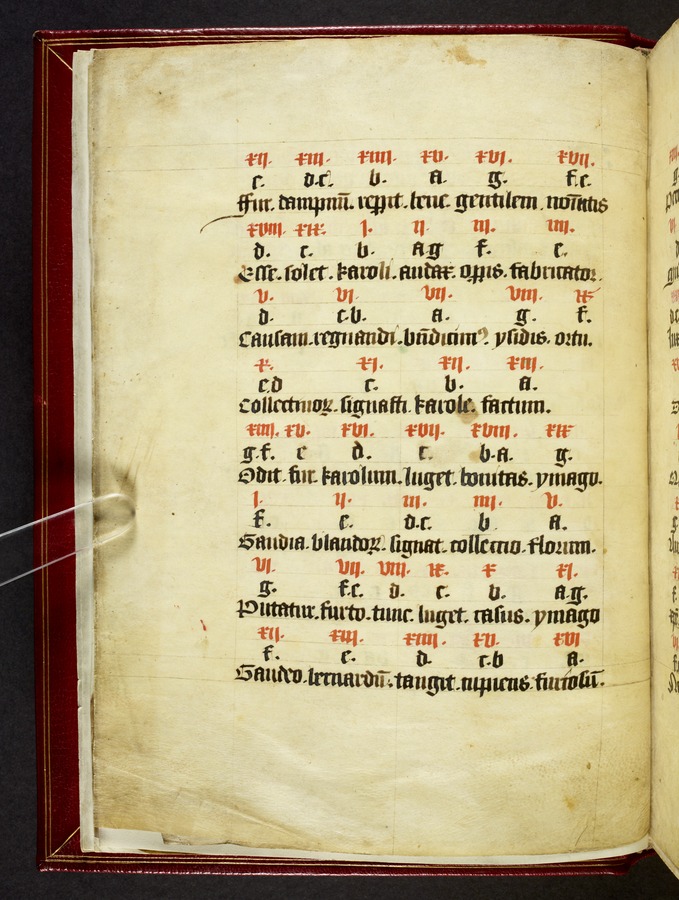 xii. xiii. xiiii. xv. xvi. xvii.
e. d.c. b. a. g. f.e.
ffur. dampnū. repit. leue. gentilem.
xviii. xix. i. ii. iii. iiii.
d. c. b. a.g f. e.
Esse. solet. karoli. audax. opis. fabricator.
v. vi. vii. viii. ix
d. c.b. a. g. f.
Causam. regnandi. ysidis. ortu.
x. xi. xii. xiii.
e.d c. b. a.
Collectinoꝝ. signasti. karole. factum.
xiiii. xv. xvi. xvii. xviii. xix
g.f. e d. c. b.a. g.
Odit. fur. karolum. luget. bonitas. ymago.
i. ii. iii. iiii. v.
f. e. d.c. b a.
Gaudia. blandoꝝ. signat. collectio. florum.
vi. vii. viii. ix. x xi.
g. f.e. d. c. b. a.g.
Putatur. furto. tunc. luget. casus. ymago
xii. xiii. xiiii. xv. xvi
f. e. d. c.b a.
Gaudeo. bernardū. tangit. cupiens. furtosū.